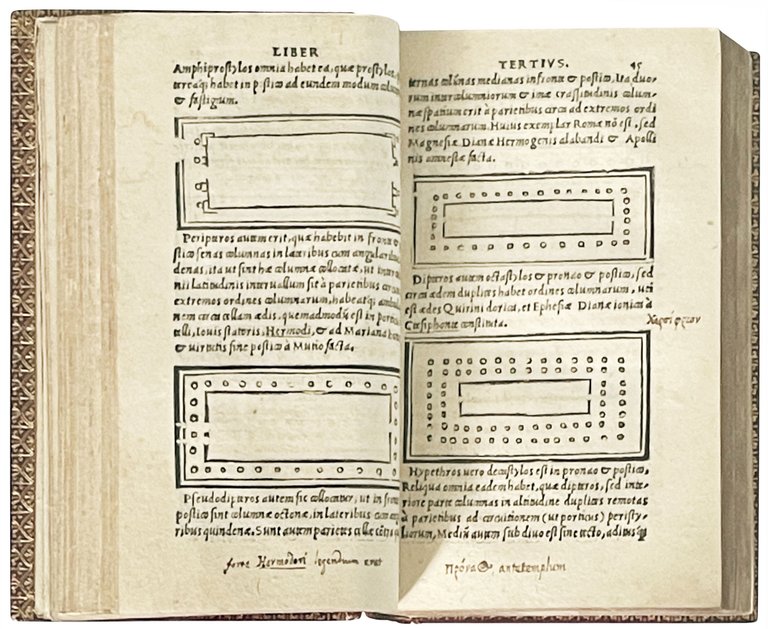 LIBER
Amphiprostylos omnia habet ea, quæ prostylos,
terea habet in postico ad eundem modum colum
& fastigium.
Peripteros autem erit, quæ habebit in fronte &
stico senas columnas in lateribus cum angularibus
denas, ita ut sint hæ columnæ collocatæ, ut inter
nii latitudinis interuallum sit à parietibus circum
extremos ordines columnarum, habeatq; ambula
nem circa cellam ædis, quemadmodũ est in porticu
telli, Iouis statoris, Hermodi, & ad Mariana hono
& uirtutis sine postico à Mutio facta.
Pseudodipteros autem sic collocatur, ut in fron
postico sint columnæ octonæ, in lateribus cum
ribus quindenæ. Sunt autem parietes cellæ
forte Hermodori legendum erat
TERTIVS. 45
ternas colũnas medianas in fronte & postico, Ita duo-
rum intercolumniorum & imæ crassitudinis colum-
næ spatium erit à parietibus circa ad extremos ordi
nes columnarum. Huius exemplar Romæ nõ est, sed
Magnesiæ Dianæ Hermogenis alabandi & Apolli
nis amnestæ facta.
Dipteros autem octastylos & pronao & postico, sed
circa ædem duplices habet ordines columnarum, uti
est ædes Quirini dorica, et Ephesiæ Dianæ ionica à
Ctesiphonte constituta.
Hypethros uero decastylos est in pronao & postico,
Reliqua omnia eadem habet, quæ dipteros, sed inte-
riore parte columnas in altitudine duplices remotas
à parietibus ad circuitionem (ut porticus) peristy-
liorum, Mediũ autem sub diuo est sine tecto, aditus q;
antetemplum